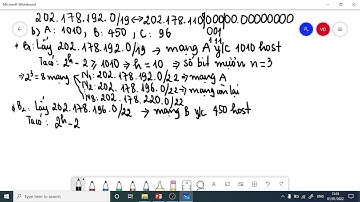 Microsoft Whiteboard
202.178.192.0/19 ↔ 202.178.110|00000.00000000
001
111
b) A: 1010, B: 450, C: 96
* B1: Lấy 202.178.192.0/19 → mạng A y/c 1010 host
Ta có: 2^h - 2 ≥ 1010 → h = 10 → số bit mượn n = 3
→ 2^3 = 8 mạng N1: 202.178.192.0/22 → mạng A
N2: 202.178.196.0/22 → mạng còn lại
N8: 202.178.220.0/22
* B2: Lấy 202.178.196.0/22 → mạng B y/c 450 host
Ta có: 2^h - 2
Type here to search